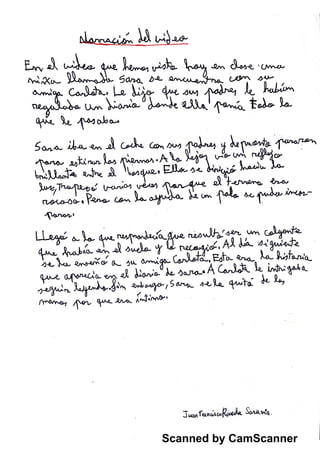 Narración del video
En el video que hemos visto hoy en clase una
niña llamada Sara se encuentra con su
amiga Carlota. Le dijo que sus padres le habían
regalado un diario donde ella ponía todo lo
que le pasaba.
Sara iba en el coche con sus padres y depronto pararon
para estirar las piernas. A lo lejos vio un reflejo
brillante entre el bosque. Ella se dirigió hacia la
luz, Tropezó varias veces porque el terreno era
rocoso. Pero con la ayuda de un palo se pudo incor-
porar.
Llegó a lo que resplandecía que resultó ser un colgante
que había en el suelo y lo recogió. Al día siguiente
se lo enseñó a su amiga Carlota, Esta era la historia
que aparecía en el diario de Sara. A Carlota le intrigaba
seguir leyendo. Sin embargo, Sara se lo quitó de las
manos por que era íntimo.
Juan Francisco Rueda
Scanned by CamScanner